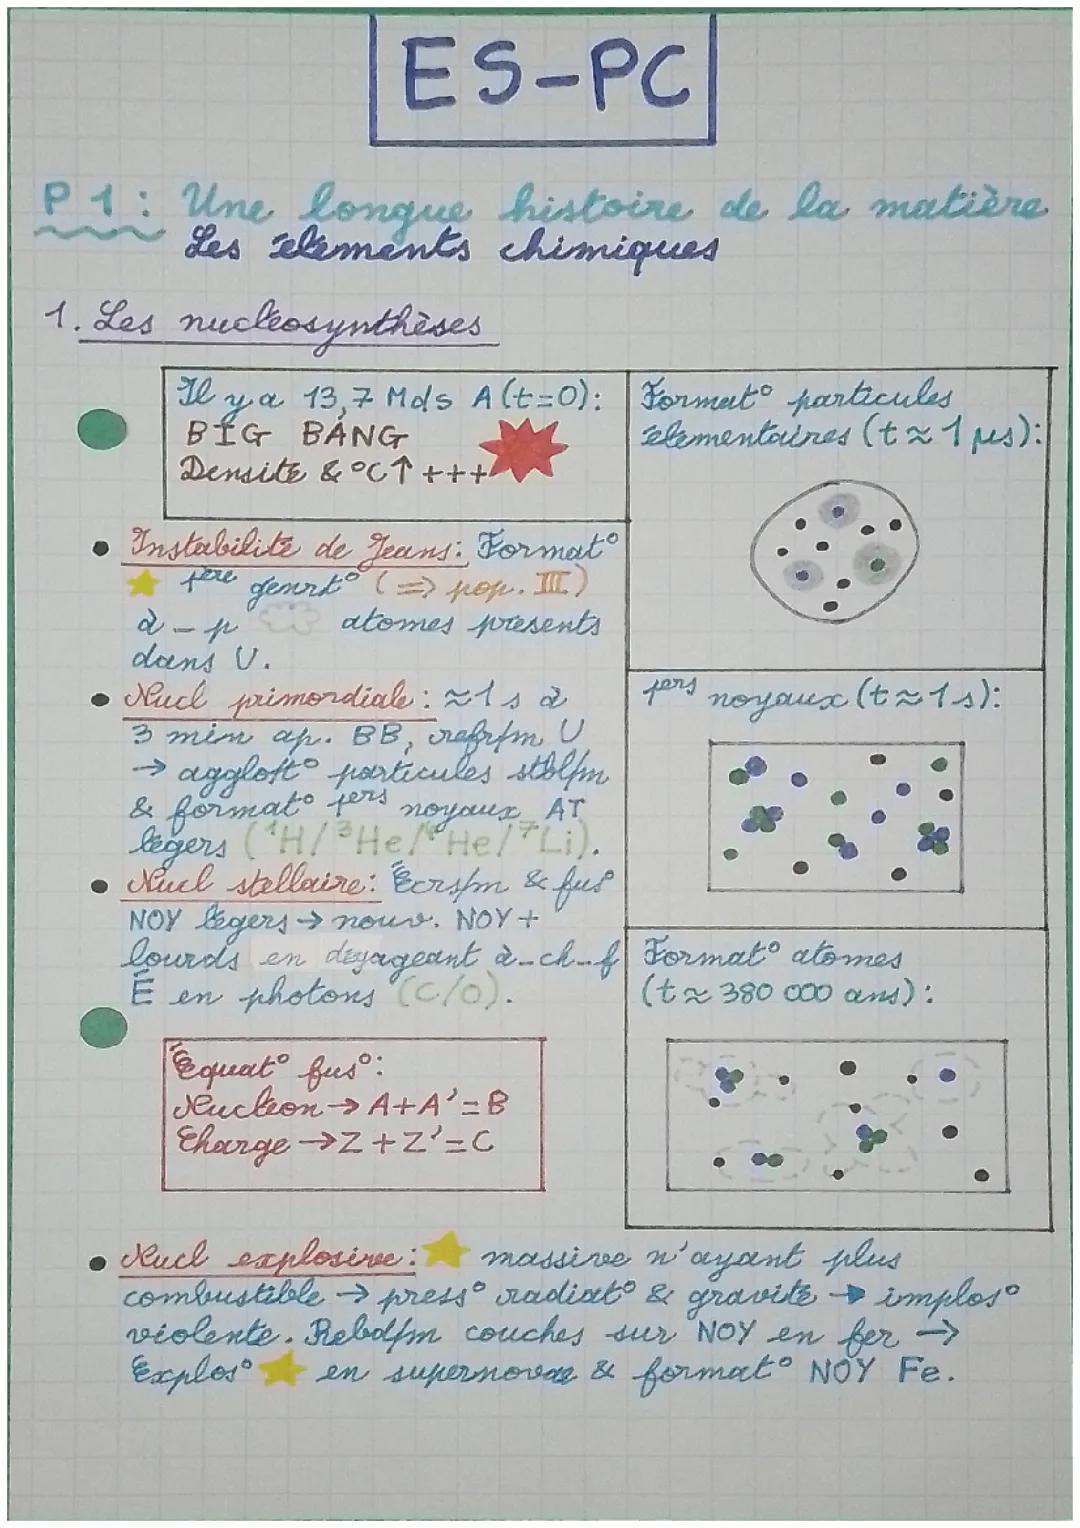 ES-PC
P1: Une longue histoire de la matière
Les élements chimiques
1. Les nucléosynthèses
Il y a 13,7 Mds A (t=0):
BIG BANG
Densité & °C↑ +++
Format° particules
élementaires (t≈1 µs):
• Instabilité de Jeans: Format°
1ère genrt° (⇒ pop. III)
à - p atomes présents
dans U.
• Nucl primordiale: ≈1 s à
3 min ap. BB, refrfm U
→ aggloft° particules stblfm
& format° 1ers noyaux AT
légers (¹H/³He/⁴He/⁷Li).
1ers noyaux (t≈1s):
• Nucl stellaire: Écrsfm & fus°
NOY légers → nouv. NOY +
lourds en dégageant à-ch-f
É en photons (C/O).
Format° atomes
(t≈380 000 ans):
Équat° fus°:
Nucléon → A+A'=B
Charge → Z+Z'=C
• Nucl explosive: massive n'ayant plus
combustible → press° radiat° & gravité → implos°
violente. Rebdfm couches sur NOY en fer →
Explos° en supernovae & format° NOY Fe.